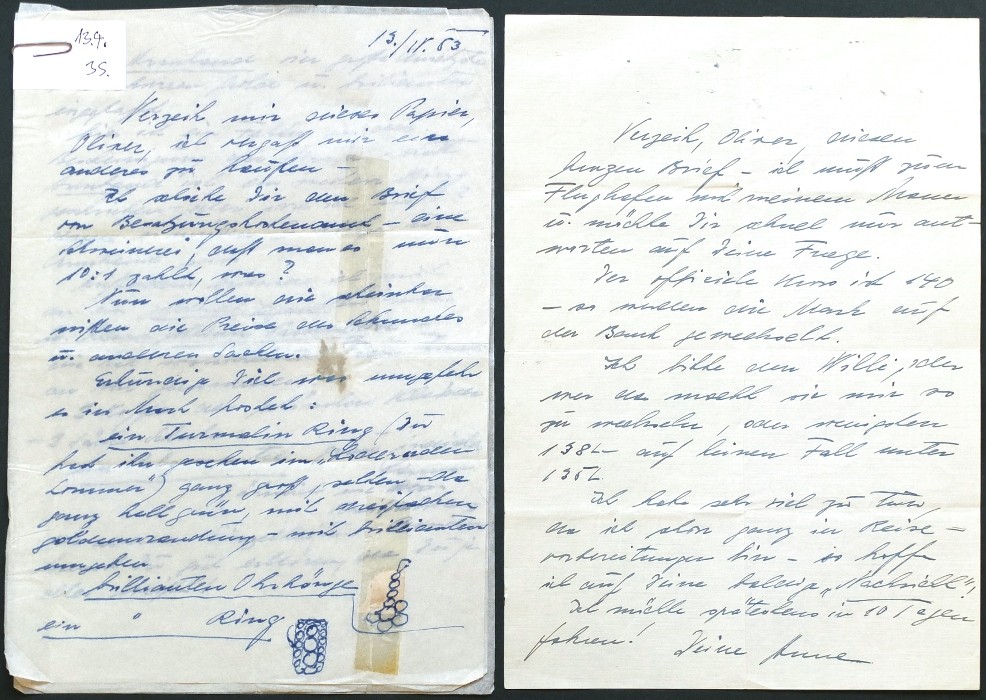 13.4.
3S.
13./IV. 53
Verzeih mir dieses Papier,
Oliver, ich vergaß mir ein
anderes zu kaufen –
Ich schicke Dir den Brief
von Besatzungskostenamt – eine
Schweinerei, daß man es nur
10:1 zahlt, was?
Nun wollen die
wissen die Preise des Schmuckes
u. anderen Sachen.
Erkundige Dich was ungefähr
es in Mark kostet:
ein Turmalin Ring (Du
hast ihn gesehen im "Lodernden
Sommer") ganz groß, selten – da
ganz hell grün, mit dreifachen
goldumrandung – mit brillianten
umgeben
brillianten Ohrhänge
ein " Ring
Verzeih, Oliver, diesen
kurzen Brief – ich muß zum
Flughafen mit meinem Mann
u. möchte Dir schnel nur ant-
worten auf Deine Frage.
Der officiele Kurs ist 140
– so wurden die Mark auf
der Bank gewechselt.
Ich bitte den Willi, oder
wer das macht sie mir so
zu wechseln, oder wenigsten
138L– auf keinen Fall unter
135L.
Ich habe sehr viel zu tun,
da ich schon ganz in Reise-
vorbereitungen bin – so hoffe
ich auf Deine baldige "Nachricht"!
Ich müßte spätestens in 10 Tagen
fahren!
Deine Anne